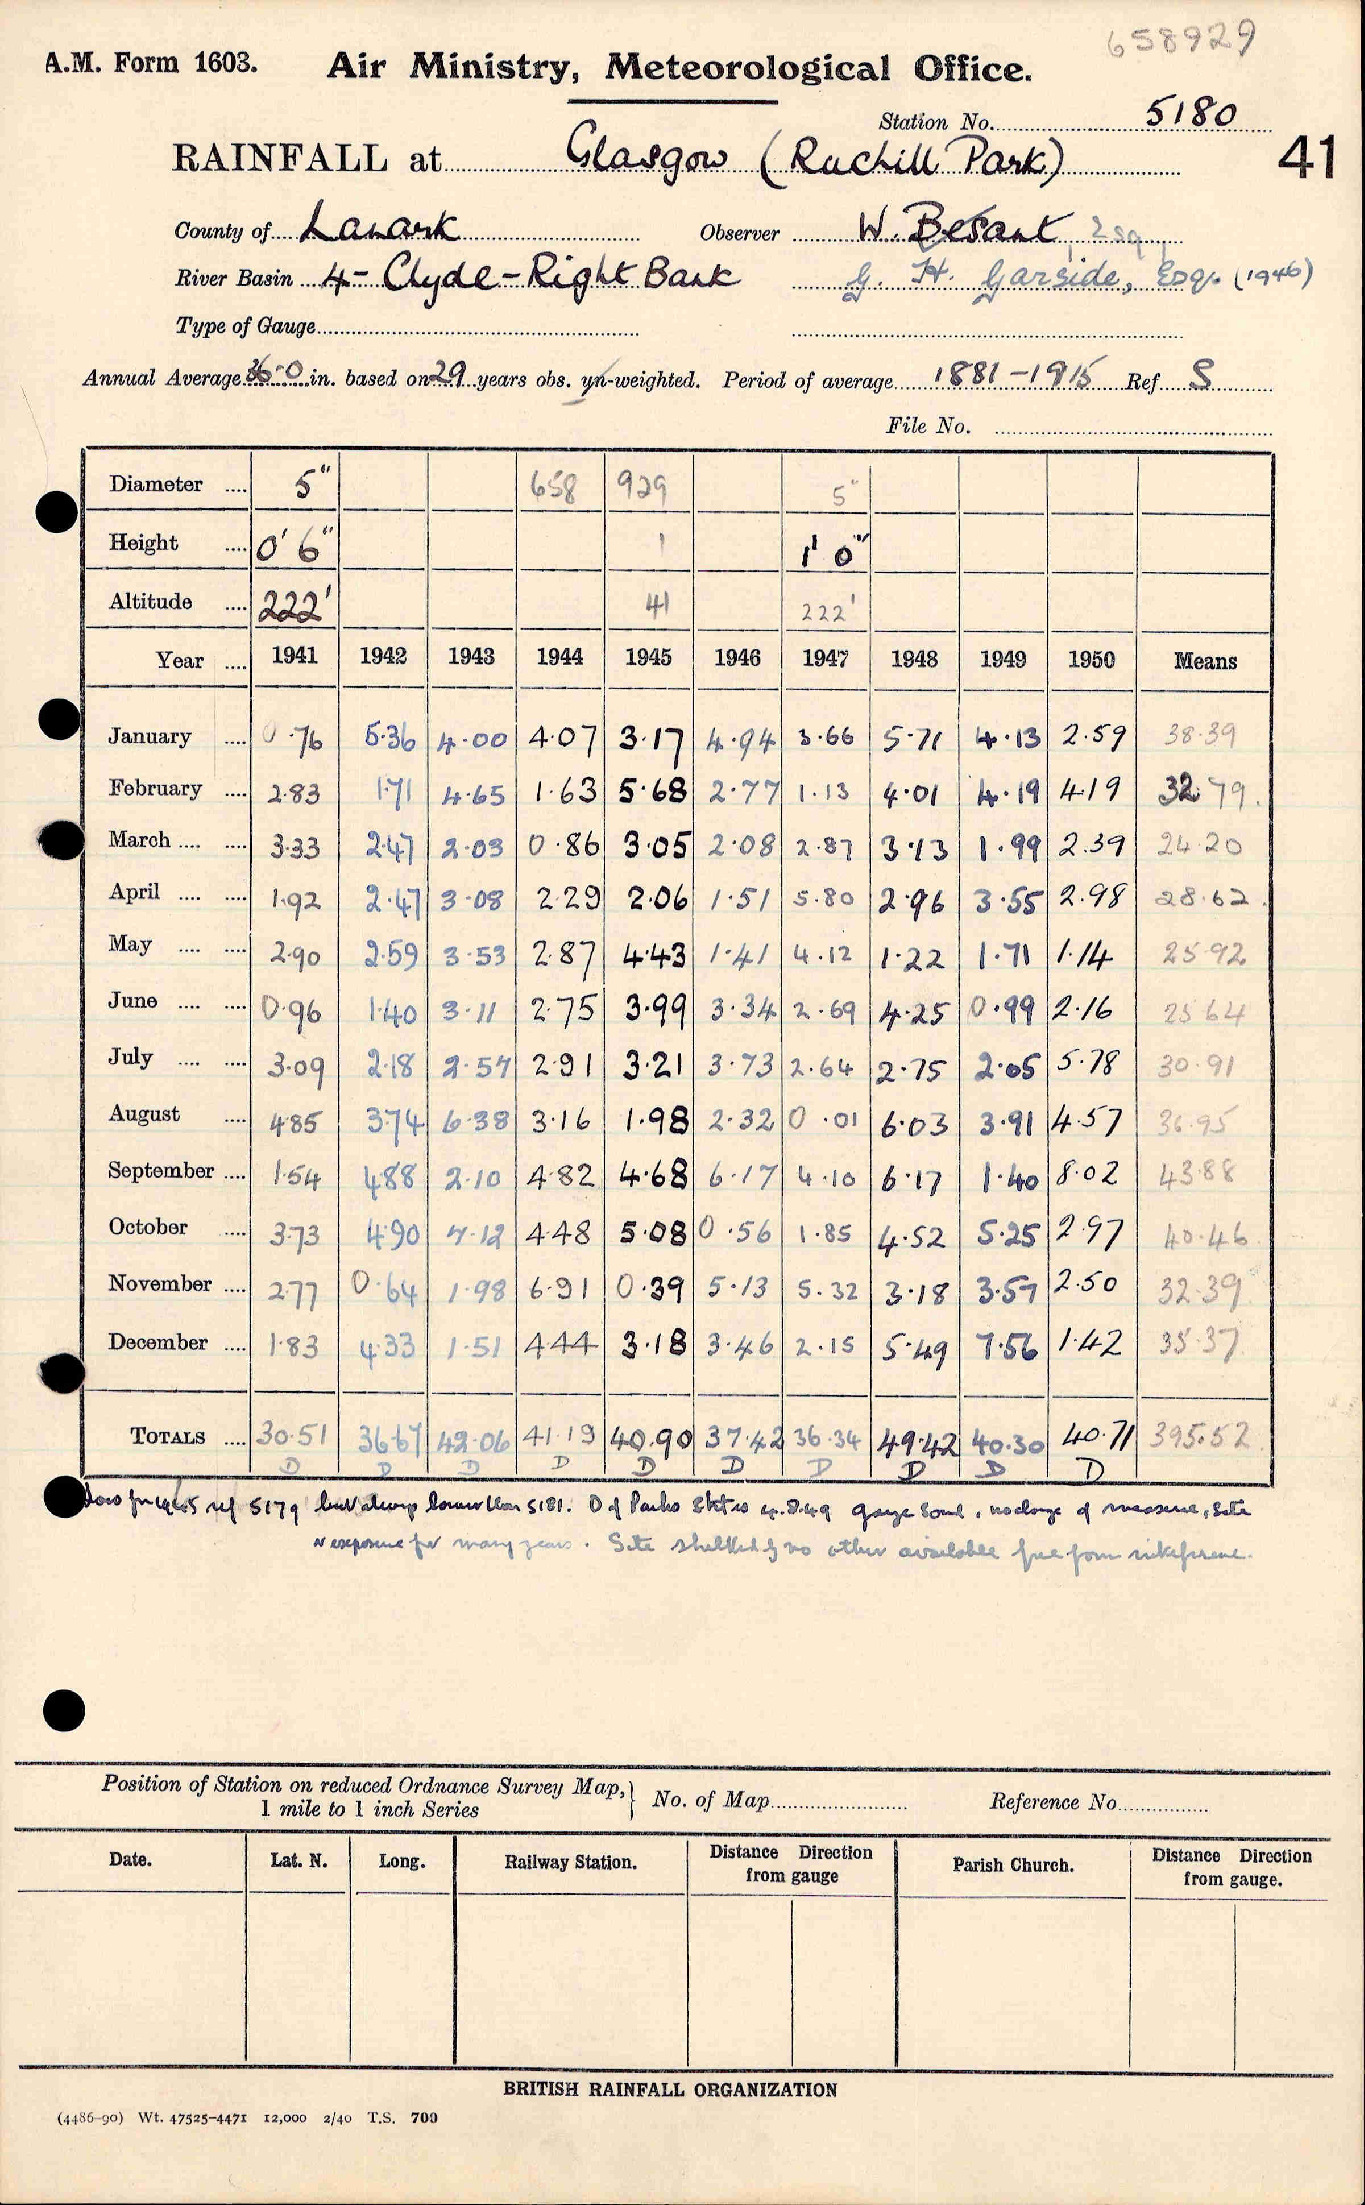 658929
A.M. Form 1603. Air Ministry, Meteorological Office.
Station No. 5180
RAINFALL at Glasgow (Ruchill Park) 41
County of Lanark Observer W. Besant, Esq.
River Basin 4 - Clyde - Right Bank G. H. Garside, Esq. (1946)
Type of Gauge
Annual Average 36.0 in. based on 29 years obs. un-weighted. Period of average 1881-1915 Ref S
File No.
Diameter .... 5" 658 929 5"
Height .... 0' 6" 1 1' 0"
Altitude .... 222' 41 222'
Year .... 1941 1942 1943 1944 1945 1946 1947 1948 1949 1950 Means
January .... 0.76 5.36 4.00 4.07 3.17 4.94 3.66 5.71 4.13 2.59 38.39
February .... 2.83 1.71 4.65 1.63 5.68 2.77 1.13 4.01 4.19 4.19 32.79
March .... .... 3.33 2.47 2.03 0.86 3.05 2.08 2.87 3.13 1.99 2.39 24.20
April .... .... 1.92 2.47 3.08 2.29 2.06 1.51 5.80 2.96 3.55 2.98 28.62
May .... .... 2.90 2.59 3.53 2.87 4.43 1.41 4.12 1.22 1.71 1.14 25.92
June .... .... 0.96 1.40 3.11 2.75 3.99 3.34 2.69 4.25 0.99 2.16 25.64
July .... .... 3.09 2.18 2.57 2.91 3.21 3.73 2.64 2.75 2.05 5.78 30.91
August .... 4.85 3.74 6.38 3.16 1.98 2.32 0.01 6.03 3.91 4.57 36.95
September .... 1.54 4.88 2.10 4.82 4.68 6.17 4.10 6.17 1.40 8.02 43.88
October .... 3.73 4.90 7.12 4.48 5.08 0.56 1.85 4.52 5.25 2.97 40.46
November .... 2.77 0.64 1.98 6.91 0.39 5.13 5.32 3.18 3.57 2.50 32.39
December .... 1.83 4.33 1.51 4.44 3.18 3.46 2.15 5.49 7.56 1.42 35.37
TOTALS .... 30.51 36.67 42.06 41.19 40.90 37.42 36.34 49.42 40.30 40.71 395.52
D D D D D D D D D D
Low for 1945 ref 5179 but always lower than 5181. D of Parks states 4.8.49 gauge sound, no change of measure, site
or exposure for many years. Site sheltered & no other available free from interference.
Position of Station on reduced Ordnance Survey Map, 1 mile to 1 inch Series } No. of Map Reference No.
Date. Lat. N. Long. Railway Station. Distance Direction from gauge Parish Church. Distance Direction from gauge.
BRITISH RAINFALL ORGANIZATION
(4486-90) Wt. 47525-4471 12,000 2/40 T.S. 700